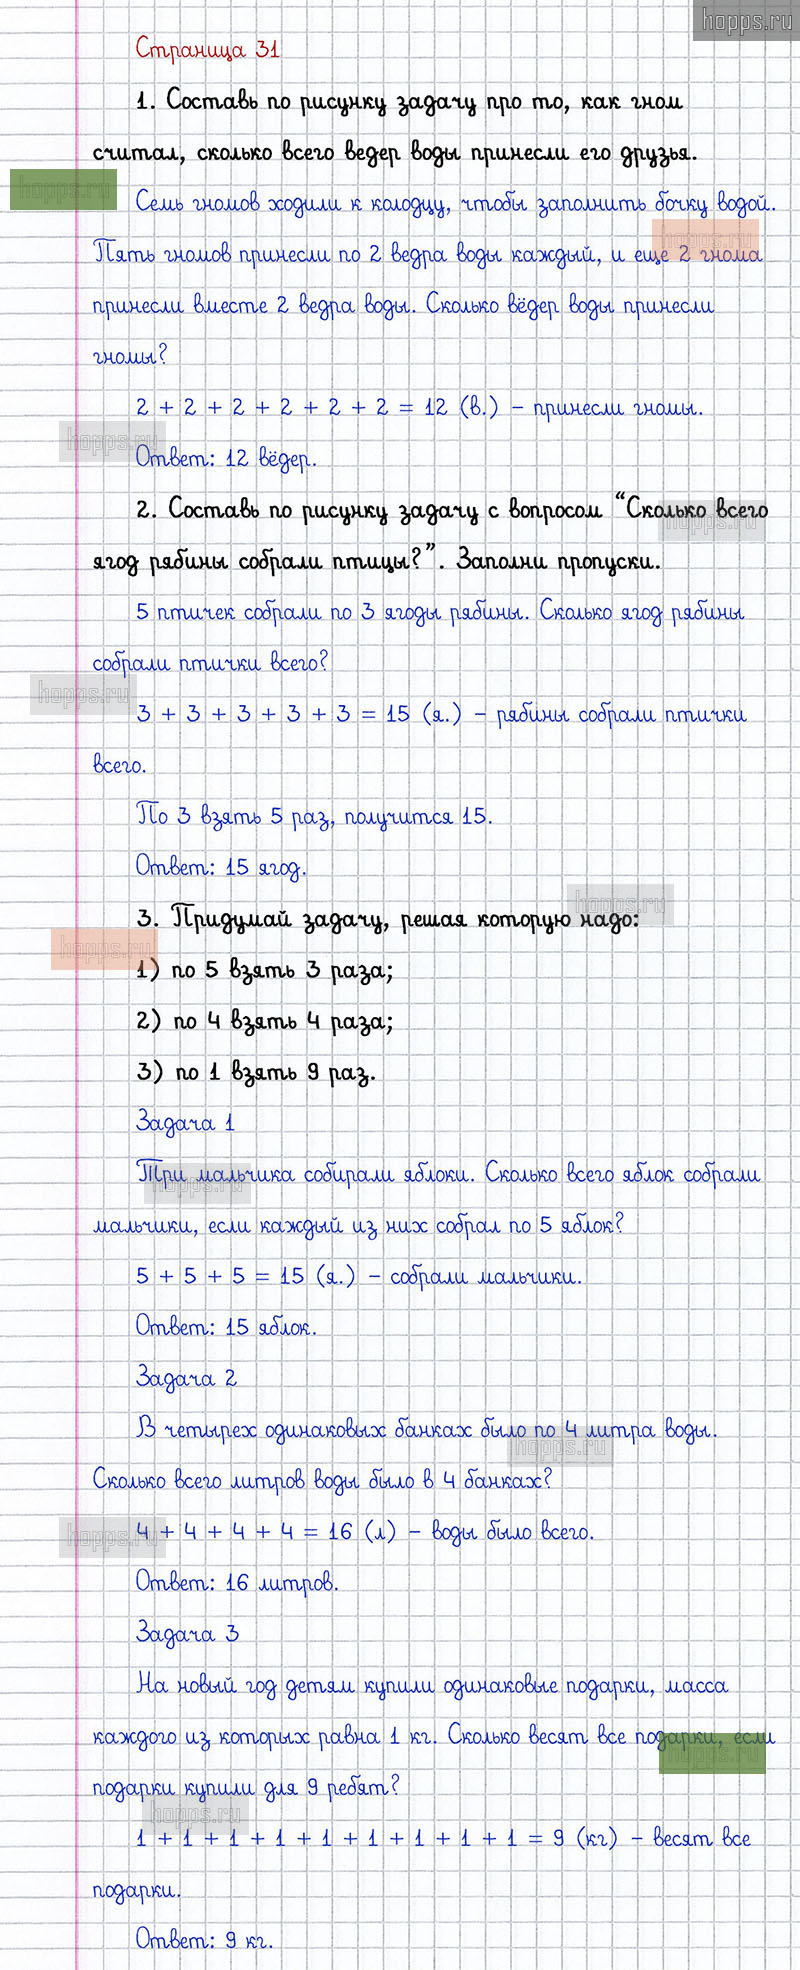 hopps.ru
Страница 31
1. Составь по рисунку задачу про то, как гном
считал, сколько всего ведер воды принесли его друзья.
hopps.ru
Семь гномов ходили к колодцу, чтобы заполнить бочку водой.
hopps.ru
Пять гномов принесли по 2 ведра воды каждый, и еще 2 гнома
принесли вместе 2 ведра воды. Сколько вёдер воды принесли
гномы?
2 + 2 + 2 + 2 + 2 + 2 = 12 (в.) – принесли гномы.
hopps.ru
Ответ: 12 вёдер.
2. Составь по рисунку задачу с вопросом “Сколько всего
hopps.ru
ягод рябины собрали птицы?”. Заполни пропуски.
5 птичек собрали по 3 ягоды рябины. Сколько ягод рябины
собрали птички всего?
hopps.ru
3 + 3 + 3 + 3 + 3 = 15 (я.) – рябины собрали птички
всего.
По 3 взять 5 раз, получится 15.
Ответ: 15 ягод.
hopps.ru
3. Придумай задачу, решая которую надо:
hopps.ru
1) по 5 взять 3 раза;
2) по 4 взять 4 раза;
3) по 1 взять 9 раз.
Задача 1
Три мальчика собирали яблоки. Сколько всего яблок собрали
hopps.ru
мальчики, если каждый из них собрал по 5 яблок?
5 + 5 + 5 = 15 (я.) – собрали мальчики.
Ответ: 15 яблок.
Задача 2
В четырех одинаковых банках было по 4 литра воды.
hopps.ru
Сколько всего литров воды было в 4 банках?
4 + 4 + 4 + 4 = 16 (л) – воды было всего.
hopps.ru
Ответ: 16 литров.
Задача 3
На новый год детям купили одинаковые подарки, масса
каждого из которых равна 1 кг. Сколько весят все подарки, если
hopps.ru
подарки купили для 9 ребят?
hopps.ru
1 + 1 + 1 + 1 + 1 + 1 + 1 + 1 + 1 = 9 (кг) – весят все
подарки.
Ответ: 9 кг.